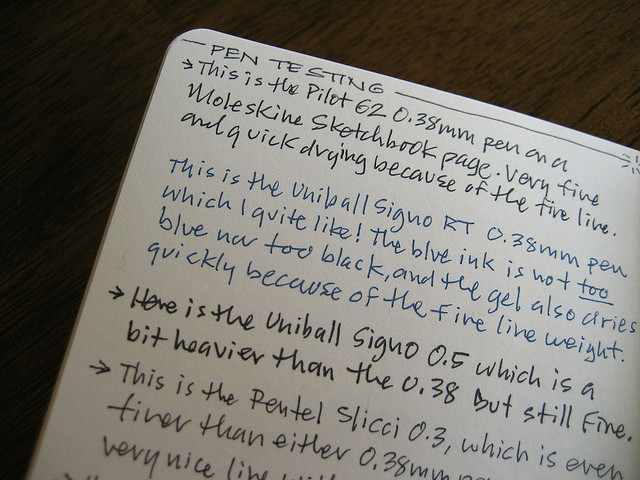 PEN TESTING
→ This is the Pilot G2 0.38mm pen on a
Moleskine Sketchbook page. Very fine
and quick drying because of the fine line.
This is the Uniball Signo RT 0.38mm pen
which I quite like! The blue ink is not too
blue nor too black, and the gel also dries
quickly because of the fine line weight.
→ Here is the Uniball Signo 0.5 which is a
bit heavier than the 0.38 but still fine.
→ This is the Pentel Slicci 0.3, which is even
finer than either 0.38mm
very nice line